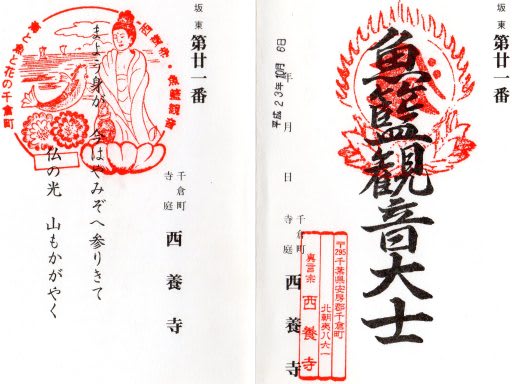 坂東 第廿一番
魚籃観音大士
〒295
千葉県安房郡千倉町
北朝夷八六一
真言宗 西養寺
千倉町
寺庭 西養寺
年 月 日
平成23年10月6日
坂東 第廿一番
魚籃観音
海と花の千倉町
千倉町
寺庭 西養寺
まよう身が 今はやみぞへ参りきて
仏の光 山もかがやく